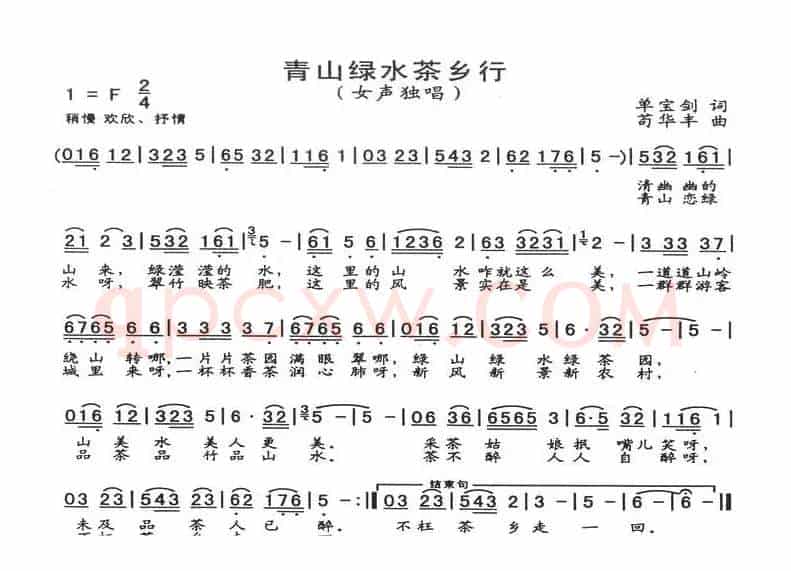 青山绿水茶乡行
(女声独唱)
1 = F 2/4
稍慢 欢欣、抒情
单宝剑 词
苟华丰 曲
(016 12 | 323 5 | 65 32 | 116 1 | 03 23 | 543 2 | 62 176 | 5 - |) 532 161 |
清幽幽的
青山恋绿
21 2 23 | 532 161 | 5 - | 61 5 6 | 1236 2 | 63 3231 | 2 - | 33 37 |
山来，绿滢滢的水，这里的山水咋就这么美，一道道山岭
水呀，翠竹映茶肥，这里的风景实在是美，一群群游客
6765 6 6 | 3 3 3 3 | 6765 6 6 | 016 12 | 323 5 | 6· 32 | 5 - | 5 - |
绕山转哪，一片片茶园满眼翠哪，绿山绿水绿茶园，
城里来呀，一杯杯香茶润心肺呀，新风新景新农村，
016 12 | 323 5 | 6· 32 | 5 - | 5 - | 06 36 | 6565 3 | 6·5 32 | 5 16 | 1 - |
山美水美人更美。采茶姑娘抿嘴儿笑呀，
品茶品竹品山水。茶不醉人人自醉呀，
03 23 | 543 2 | 23 2 | 62 176 | 5 - :|| 03 23 | 543 2 | 2 5 | 6 - | 6 - | 1 - | 1 - ||
结束句
未及品茶人已醉。不枉茶乡走一回。